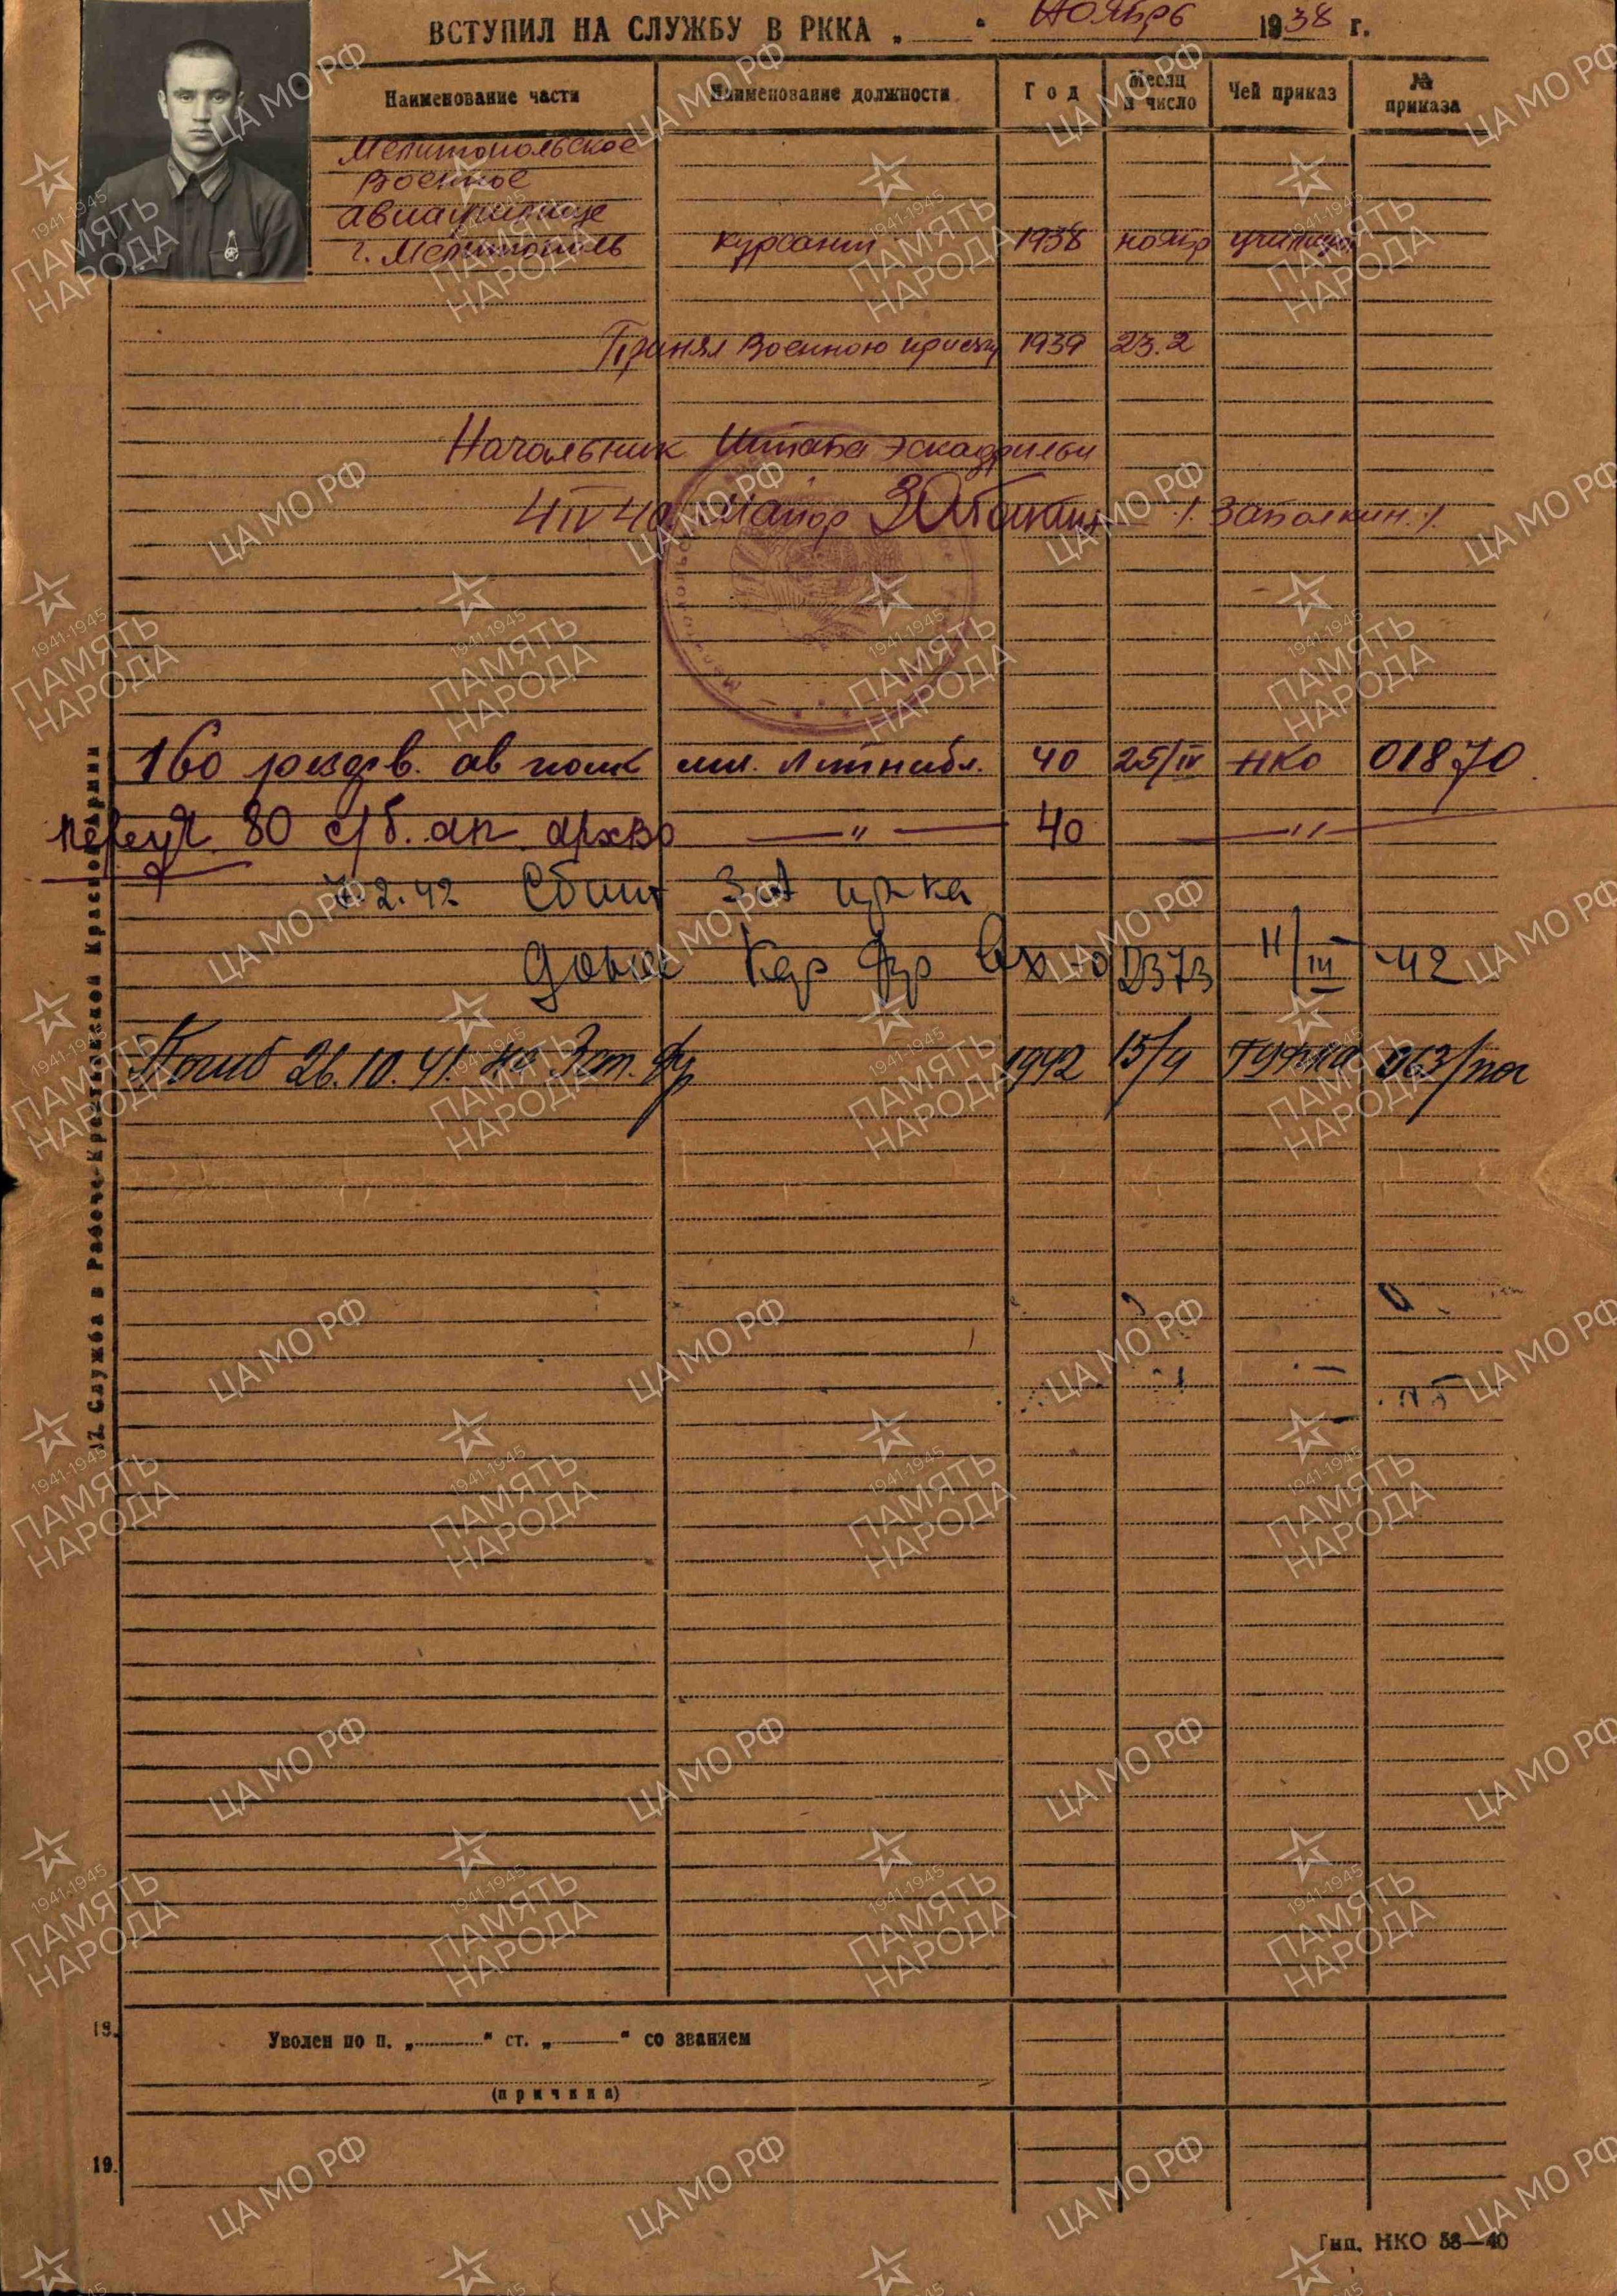 ВСТУПИЛ НА СЛУЖБУ В РККА „ “ Ноябрь 1938 г.
Наименование части Наименование должности Год Месяц и число Чей приказ № приказа
Мелитопольское
Военное
авиаучилище
г. Мелитополь курсант 1938 ноябр училища
Принял Военною присягу 1939 23.2
Начальник Штаба эскадрильи
4 IV 40 Майор /. Заболкин. /.
160 резерв. ав полк мл. Летнабл. 40 25/IV НКО 01870
80 сб. ап. архво — " — 40 — " —
7.2.42 Сбит ЗА
донес Кар фр Вх 02373 11/III 42
Погиб 26.10.41. на Зап. фр 1942 15/4 ГУФКА 063/пог
17. Служба в Рабоче-Крестьянской Красной Армии
18. Уволен по п. „ “ ст. „ “ со званием
(причина)
19.
Тип. НКО 58—40
ЦА МО РФ
1941-1945
ПАМЯТЬ
НАРОДА